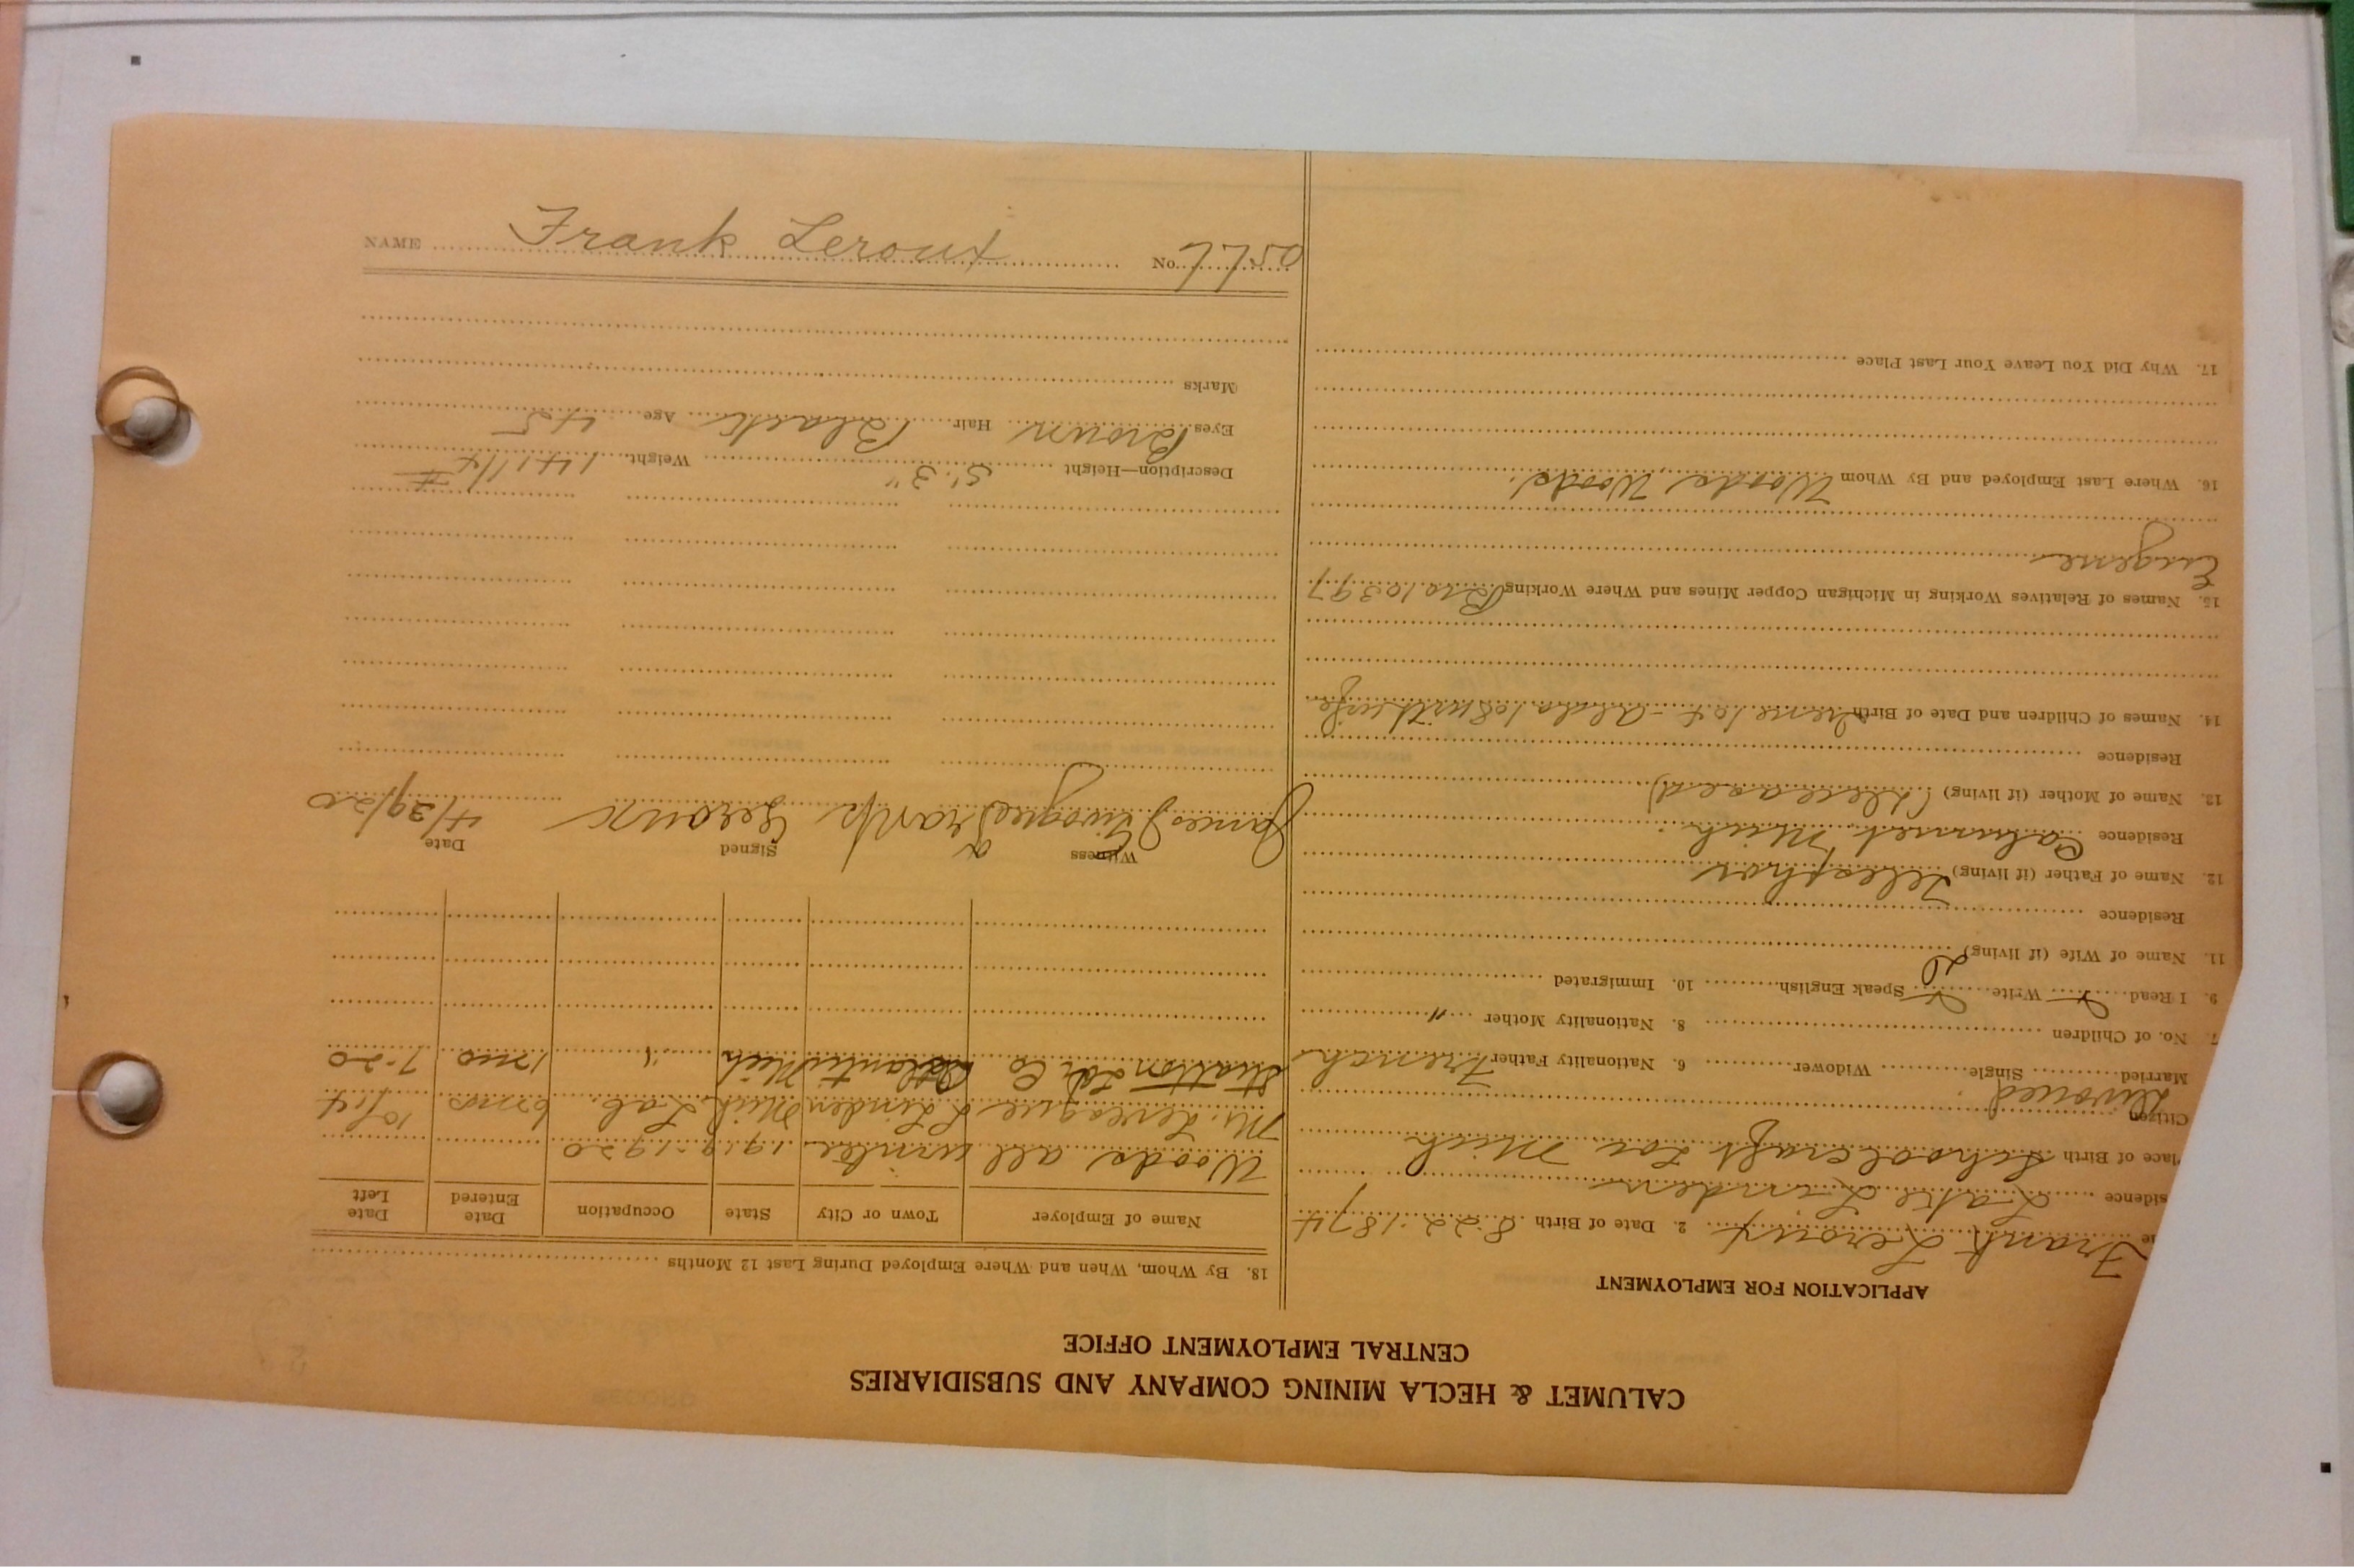 CALUMET & HECLA MINING COMPANY AND SUBSIDIARIES
CENTRAL EMPLOYMENT OFFICE
APPLICATION FOR EMPLOYMENT
Frank Leroux 2. Date of Birth 8-22-1874
sidence Lake Linden
lace of Birth Schoolcraft Loc Mich
Citizen
Divorced
Married Single Widower 6. Nationality Father French
7. No. of Children 8. Nationality Mother "
9. I Read Write Speak English 10. Immigrated
11. Name of Wife (if living)
Residence
12. Name of Father (if living) Telesphor
Residence Calumet Mich.
13. Name of Mother (if living) (deceased)
Residence
14. Names of Children and Date of Birth with wife
15. Names of Relatives Working in Michigan Copper Mines and Where Working Bro 10397
Eugene
16. Where Last Employed and By Whom Woods Woods.
17. Why Did You Leave Your Last Place
18. By Whom, When and Where Employed During Last 12 Months
Name of Employer Town or City State Occupation Date Entered Date Left
Woods all winter 1919-1920
Mr. Leveque L Linden Mich. Lab. 6 mos 10/14
Stratton Co Atlantic Mich " 1 mo 7-20
Witness Signed Date
James Frank Leroux 4/29/20
Description—Height 5' 3" Weight 141 1/4 #
Eyes Brown Hair Black Age 45
Marks
NAME Frank Leroux No. 7750